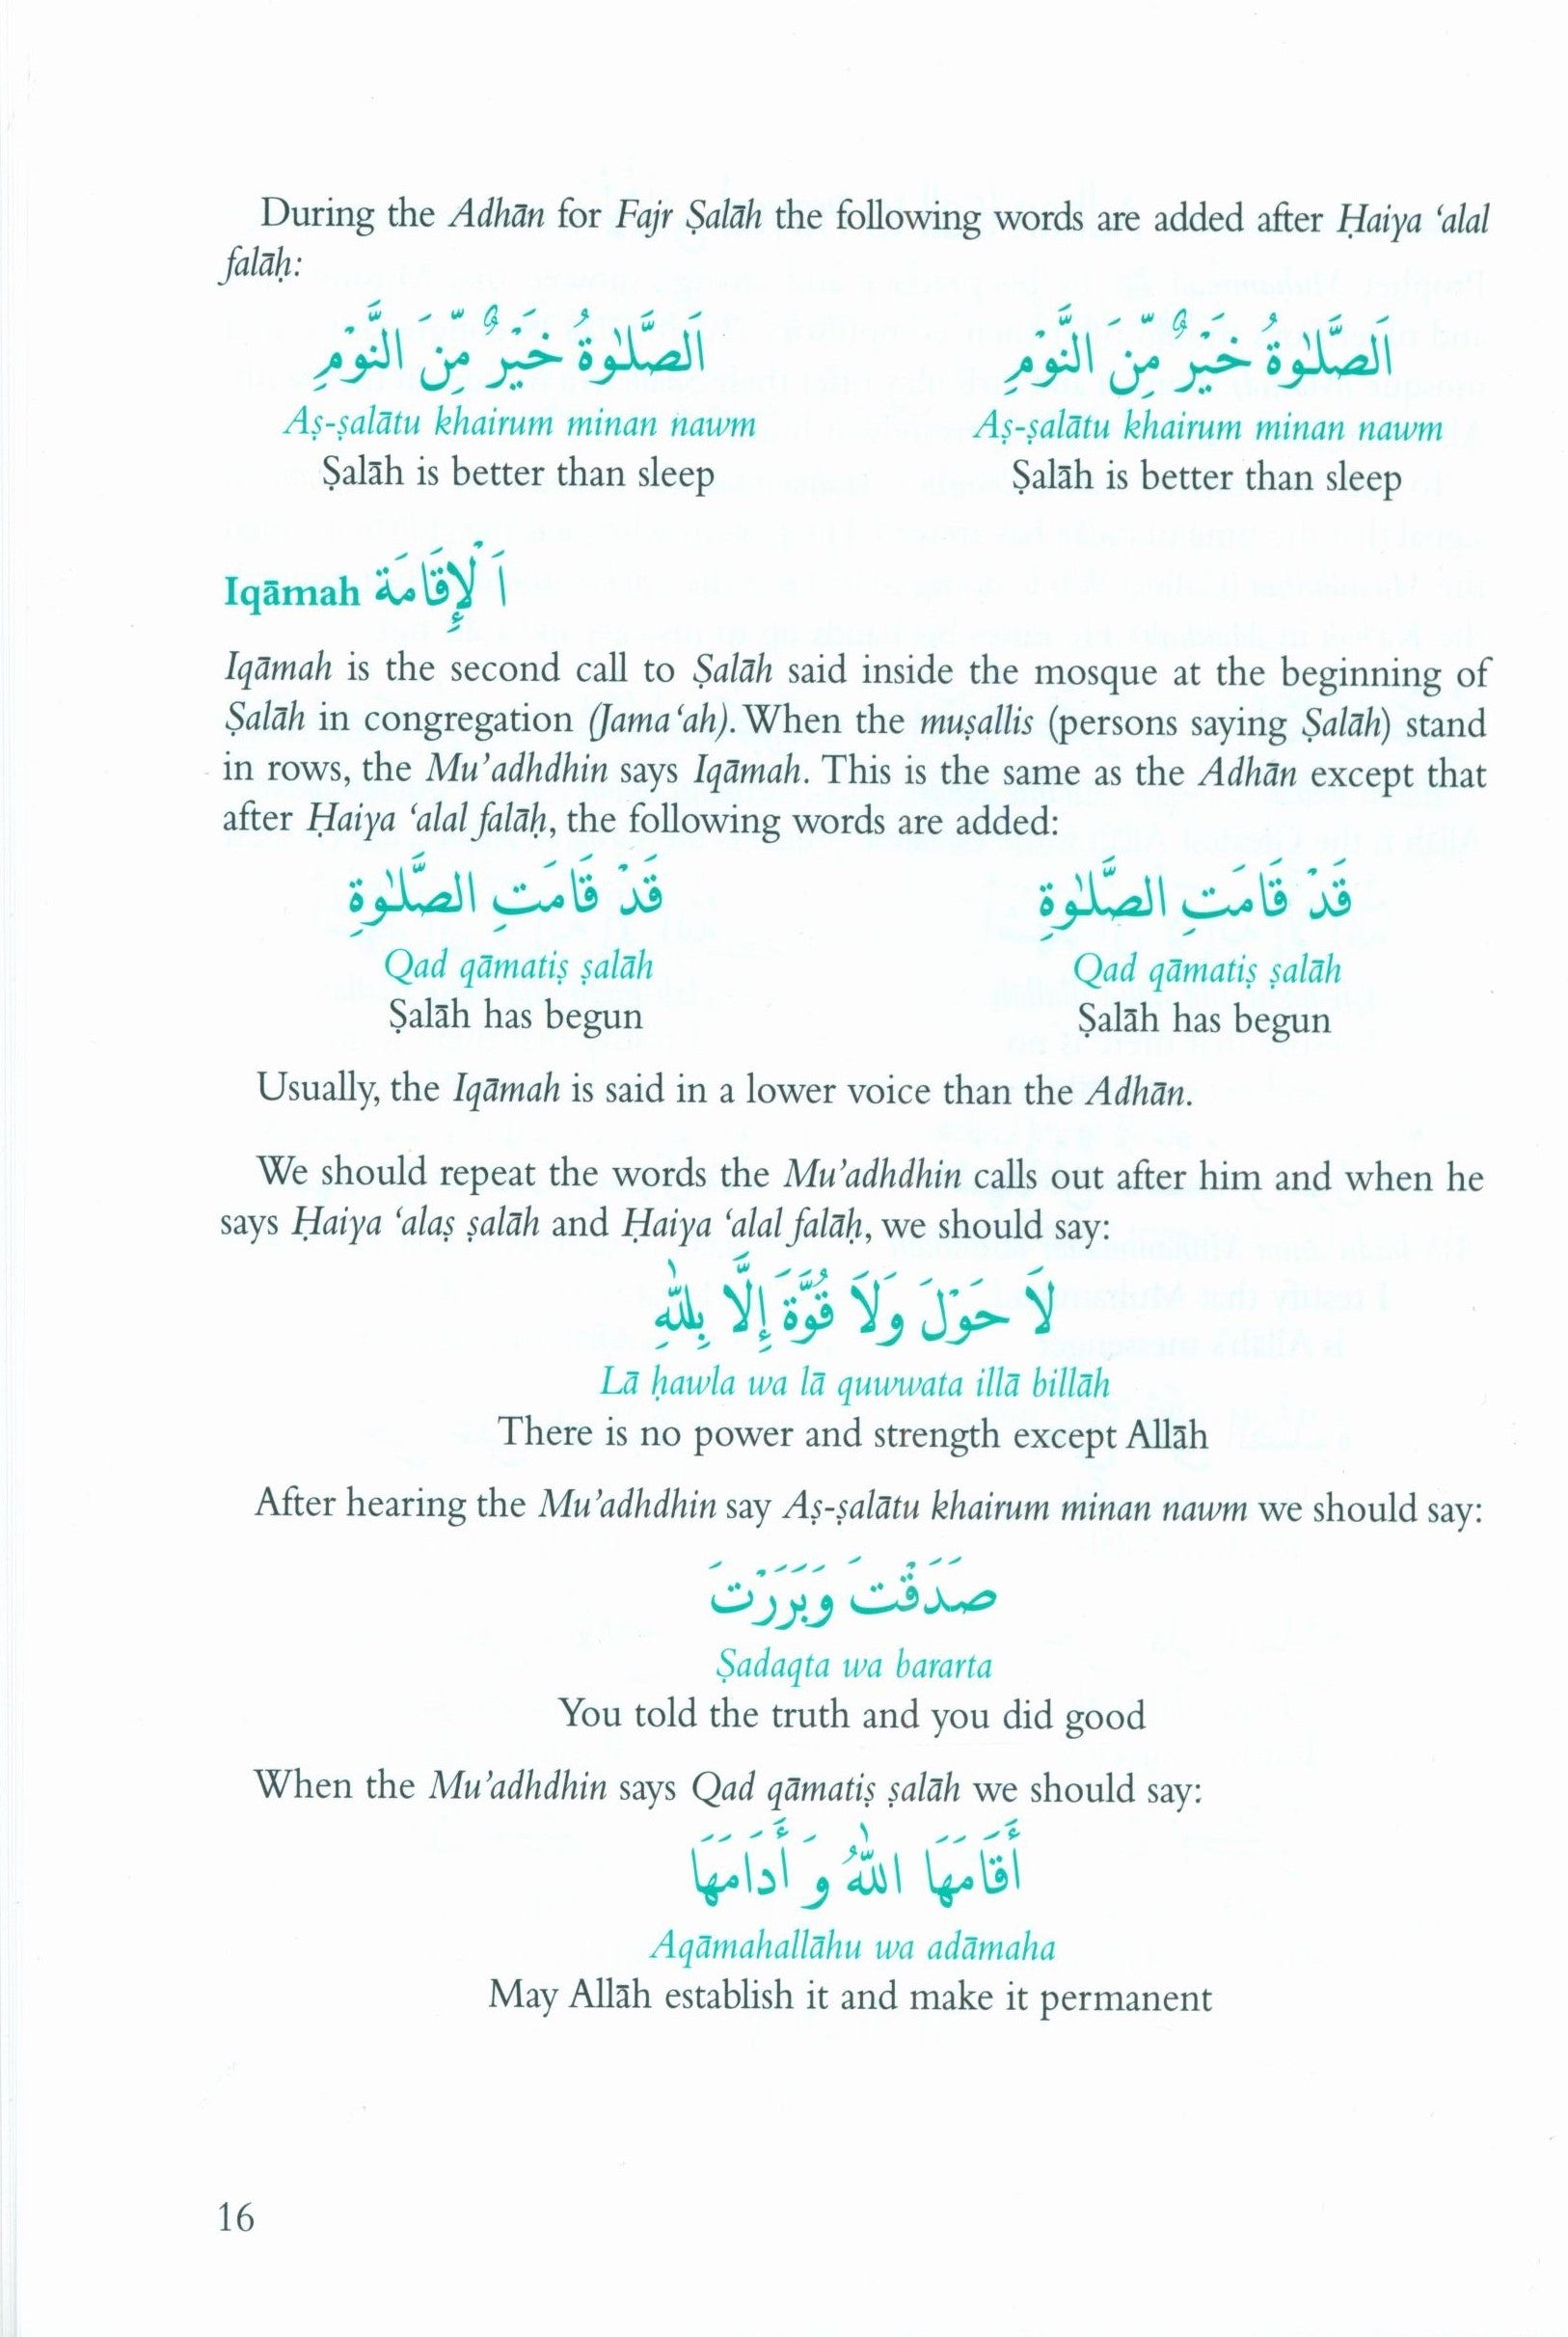 During the Adhān for Fajr Ṣalāh the following words are added after Ḥaiya ‘alal
falāḥ:
اَلصَّلٰوةُ خَيْرٌ مِّنَ النَّوْمِ اَلصَّلٰوةُ خَيْرٌ مِّنَ النَّوْمِ
Aṣ-ṣalātu khairum minan nawm Aṣ-ṣalātu khairum minan nawm
Ṣalāh is better than sleep Ṣalāh is better than sleep
Iqāmah اَلْإِقَامَة
Iqāmah is the second call to Ṣalāh said inside the mosque at the beginning of
Ṣalāh in congregation (Jama‘ah). When the muṣallis (persons saying Ṣalāh) stand
in rows, the Mu’adhdhin says Iqāmah. This is the same as the Adhān except that
after Ḥaiya ‘alal falāḥ, the following words are added:
قَدْ قَامَتِ الصَّلٰوةِ قَدْ قَامَتِ الصَّلٰوةِ
Qad qāmatiṣ ṣalāh Qad qāmatiṣ ṣalāh
Ṣalāh has begun Ṣalāh has begun
Usually, the Iqāmah is said in a lower voice than the Adhān.
We should repeat the words the Mu’adhdhin calls out after him and when he
says Ḥaiya ‘alaṣ ṣalāh and Ḥaiya ‘alal falāḥ, we should say:
لَا حَوْلَ وَلَا قُوَّةَ إِلَّا بِاللّٰهِ
Lā ḥawla wa lā quwwata illā billāh
There is no power and strength except Allāh
After hearing the Mu’adhdhin say Aṣ-ṣalātu khairum minan nawm we should say:
صَدَقْتَ وَبَرَرْتَ
Ṣadaqta wa bararta
You told the truth and you did good
When the Mu’adhdhin says Qad qāmatiṣ ṣalāh we should say:
أَقَامَهَا اللّٰهُ وَ أَدَامَهَا
Aqāmahallāhu wa adāmaha
May Allāh establish it and make it permanent
16